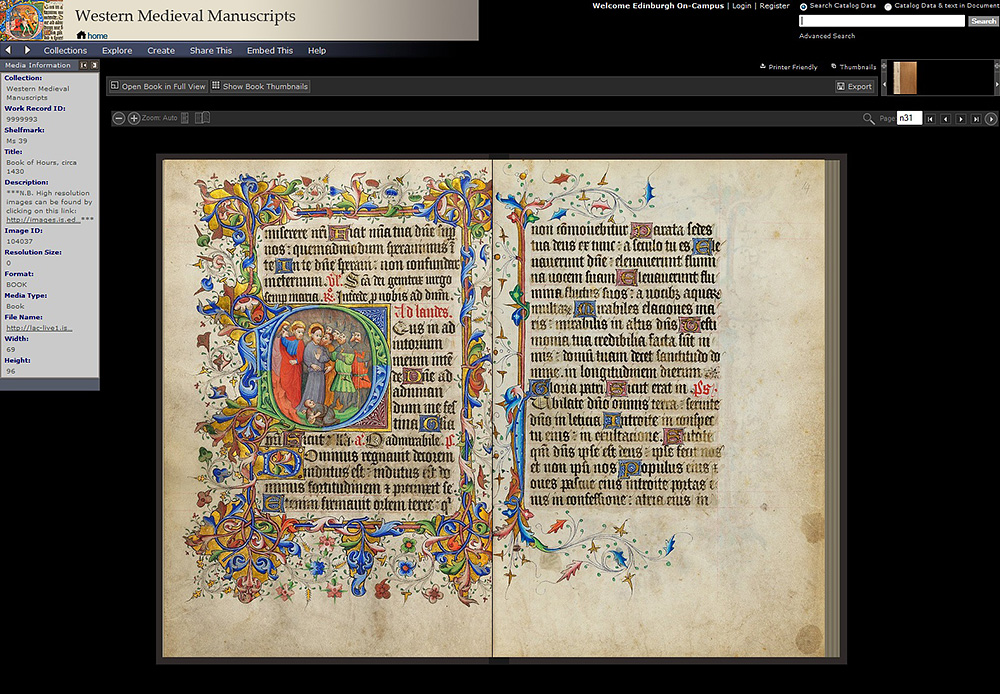 Western Medieval Manuscripts
home
Welcome Edinburgh On-Campus | Login | Register
Search Catalog Data
Catalog Data & text in Document
Search
Advanced Search
Collections Explore Create Share This Embed This Help
Media Information
Collection:
Western Medieval
Manuscripts
Work Record ID:
9999993
Shelfmark:
Ms 39
Title:
Book of Hours, circa
1430
Description:
***N.B. High resolution
images can be found by
clicking on this link:
http://images.is.ed...***
Image ID:
104037
Resolution Size:
0
Format:
BOOK
Media Type:
Book
File Name:
http://lac-live1.is...
Width:
69
Height:
96
Printer Friendly Thumbnails
Open Book in Full View Show Book Thumbnails
Export
Zoom: Auto
Page n31
miserere nr̄i Fiat mīa tua dn̄e sup
nos: quemadmodum sperauimus ī
te In te dn̄e speraui: non confundar
ineternum. Sc̄a dei genitrix virgo
semp maria. p nobis ad dnm.
Ad laudes.
Eus in ad
iutorium
meum inte
de Dn̄e ad
adiuuan
dum me fes
tina Glia
pr̄i Sicut O admirabile. p̄.
Dominus regnauit decorem
indutus est: indutus est do
minus fortitudinem & precinxit se
Etenim firmauit orbem terre: q̄
non cōmouebitur Parata sedes
tua deus ex tunc: a seculo tu es Ele
uauerunt flumina dn̄e: eleuauerunt flumi
na vocem suam Eleuauerunt flu
mina fluctus suos: a vocibȝ aquarȝ
multarȝ Mirabiles elaciones ma
ris: mirabilis in altis dn̄s Testi
monia tua credibilia facta sūt ni
mis: domū tuam decet sanctitudo do
mine in longitudinem dierum
Gloria patri Sicut erat in p̄s
Iubilate dn̄o omnis terra: seruite
dn̄o in leticia Introite in conspec
tu eius: in exultacione. Scitote
qm̄ dn̄s ipse est deus: ipse fecit nos
et non ipī nos Populus eius &
oues pascue eius introite portas e
ius in confessione: atria eius in